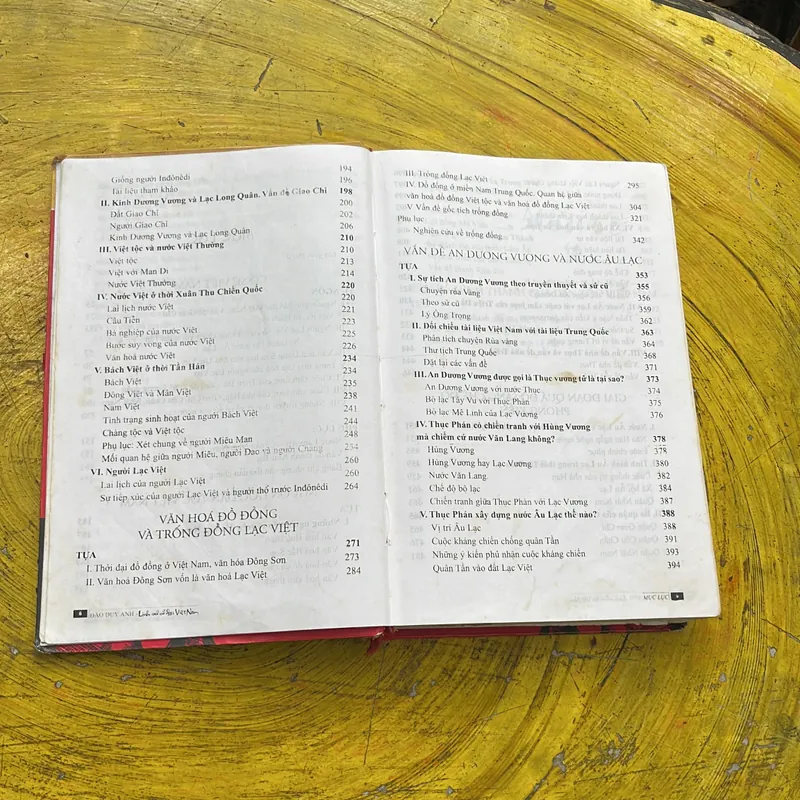 194
Giống người Inđônêdi 196
Tài liệu tham khảo
II. Kinh Dương Vương và Lạc Long Quân. Vấn đề Giao Chỉ 198
Đất Giao Chỉ 200
Người Giao Chỉ 202
Kinh Dương Vương và Lạc Long Quân 206
III. Việt tộc và nước Việt Thường 210
Việt tộc 210
Việt với Man Di 213
Nước Việt Thường 214
IV. Nước Việt ở thời Xuân Thu Chiến Quốc 220
Lai lịch nước Việt 220
Câu Tiễn 221
Bá nghiệp của nước Việt 223
Bước suy vong của nước Việt 225
Văn hoá nước Việt 226
V. Bách Việt ở thời Tần Hán 234
Bách Việt 234
Đông Việt và Mân Việt 235
Nam Việt 238
Tình trạng sinh hoạt của người Bách Việt 241
Chàng tộc và Việt tộc 244
Phụ lục: Xét chung về người Miêu Man 248
Mối quan hệ giữa người Miêu, người Dao và người Chàng 254
VI. Người Lạc Việt 260
Lai lịch của người Lạc Việt 260
Sự tiếp xúc của người Lạc Việt và người thổ trước Inđônêdi 264
VĂN HOÁ ĐỒ ĐỒNG
VÀ TRỐNG ĐỒNG LẠC VIỆT
TỰA 271
I. Thời đại đồ đồng ở Việt Nam, văn hóa Đông Sơn 273
II. Văn hoá Đông Sơn vốn là văn hoá Lạc Việt 284
6 ĐÀO DUY ANH Lịch sử cổ đại Việt Nam
III. Trống đồng Lạc Việt 295
IV. Đồ đồng ở miền Nam Trung Quốc. Quan hệ giữa
văn hoá đồng Việt tộc và văn hoá đồng Lạc Việt 304
V Vấn đề gốc tích trống đồng 321
Phụ lục
Nghiên cứu về trống đồng 342
VẤN ĐỀ AN DƯƠNG VƯƠNG VÀ NƯỚC ÂU LẠC
TỰA 353
I. Sự tích An Dương Vương theo truyền thuyết và sử cũ 355
Chuyện rùa Vàng 356
Theo sử cũ 359
Lý Ông Trọng 362
II. Đối chiếu tài liệu Việt Nam với tài liệu Trung Quốc 363
Phân tích chuyện Rùa vàng 364
Thư tịch Trung Quốc 368
Đặt lại các vấn đề 371
III. An Dương Vương được gọi là Thục vương tử là tại sao? 373
An Dương Vương với nước Thục 374
Bộ lạc Tây Vu với Thục Phán 375
Bộ lạc Mê Linh của Lạc Vương 376
IV. Thục Phán có chiến tranh với Hùng Vương
mà chiếm cứ nước Văn Lang không? 378
Hùng Vương 378
Hùng Vương hay Lạc Vương 380
Nước Văn Lang 382
Chế độ bộ lạc 384
Chiến tranh giữa Thục Phán với Lạc Vương 387
V. Thục Phán xây dựng nước Âu Lạc thế nào? 388
Vị trí Âu Lạc 388
Cuộc kháng chiến chống quân Tần 391
Những ý kiến phủ nhận cuộc kháng chiến 393
Quân Tần vào đất Lạc Việt 394
MỤC LỤC